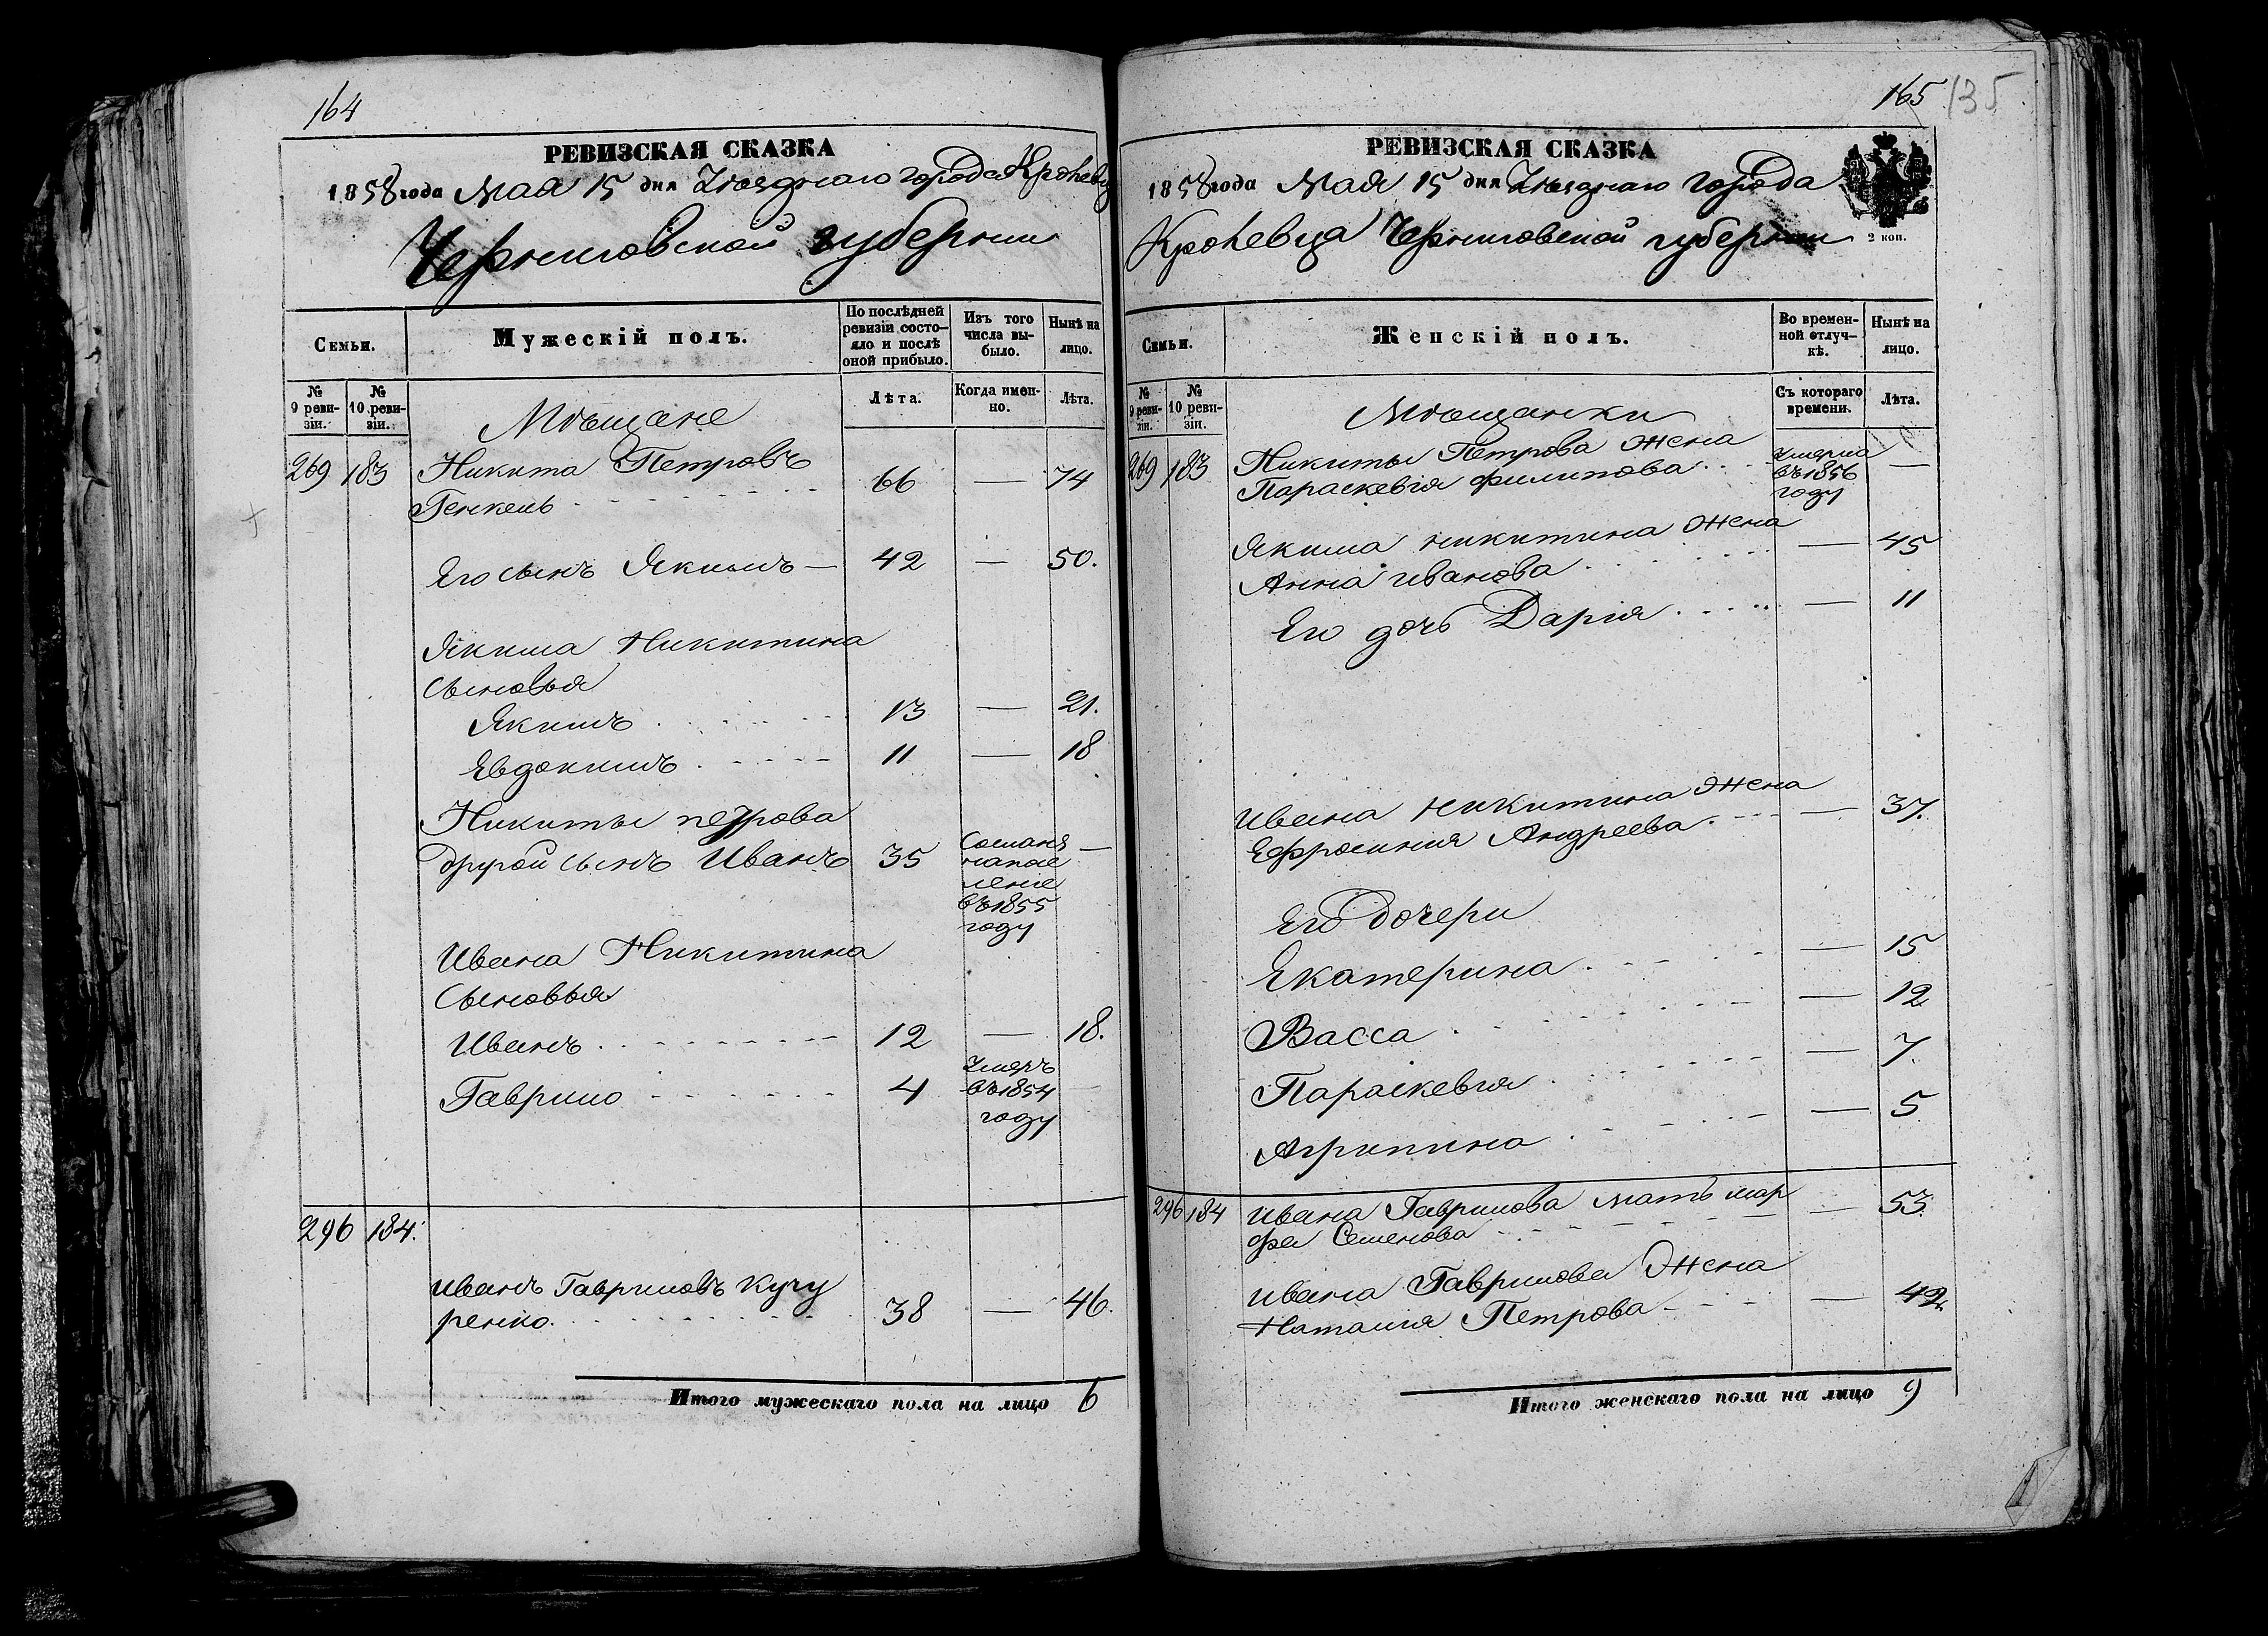 164
РЕВИЗСКАЯ СКАЗКА
1858 года Мая 15 дня Уѣзднаго города Кролевца
Черниговской губернии
Семьи.
Мужескій полъ.
По послѣдней ревизіи состо-
яло и послѣ оной прибыло.
Изъ того числа вы-
было.
Нынѣ на лицо.
№ 9 реви-
зіи.
№ 10 реви-
зіи.
Лѣта.
Когда имен-
но.
Лѣта.
Мѣщане
269 183 Никита Петровъ
Генкель 66 — 74
Его сынъ Якимъ — 42 — 50.
Якима Никитина
Сыновья
Якимъ 13 — 21.
Евдокимъ 11 — 18
Никиты петрова
другой сынъ Иванъ 35 —
въ 1855
году
Ивана Никитина
Сыновья
Иванъ 12 — 18.
Гаврило 4 Умеръ
въ 1854
году
296 184.
Иванъ Гавриловъ Кучу
ренко. 38 — 46.
Итого мужескаго пола на лицо 6
165 135
РЕВИЗСКАЯ СКАЗКА
1858 года Мая 15 дня Уѣзднаго города
Кролевца Черниговской губернии
2 коп.
Семьи.
Женскій полъ.
Во времен-
ной отлуч-
кѣ.
Нынѣ на лицо.
№ 9 реви-
зіи.
№ 10 реви-
зіи.
Съ котораго времени.
Лѣта.
Мѣщанки
269 183 Никиты Петрова жена
Параскевія филипова Умерла
въ 1856
году —
Якима никитина жена
Анна иванова — 45
Его дочь Дарія — 11
Ивана никитина жена
Ефросинія Андреева — 37.
Его дочери
Екатерина — 15
Васса — 12
Параскевія — 7.
Агрипина — 5
296 184 Ивана Гаврилова мать мар
фа Семенова — 53.
Ивана Гаврилова жена
Наталия Петрова — 42.
Итого женскаго пола на лицо 9